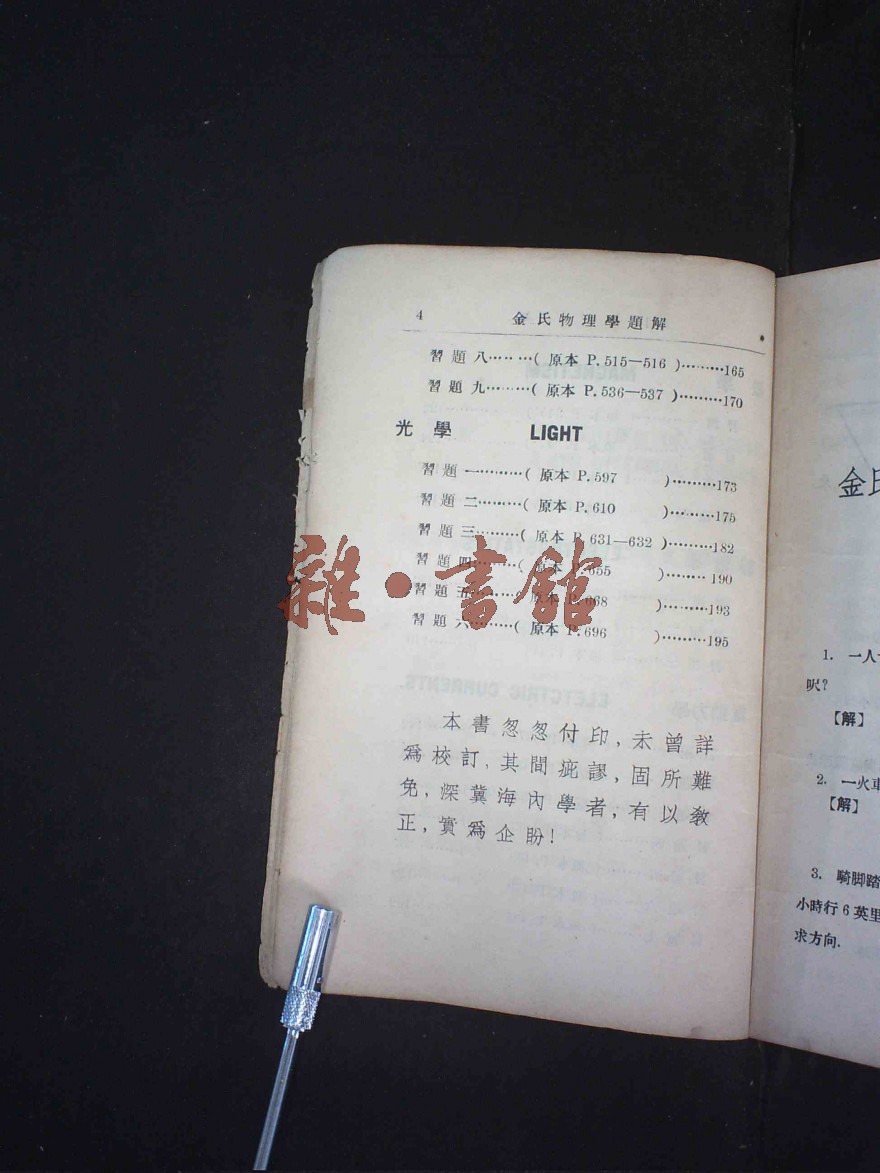 4 金氏物理學題解
習題八………(原本 P.515—516)………165
習題九………(原本 P.536—537)………170
光學 LIGHT
習題一………(原本 P.597)………173
習題二………(原本 P.610)………175
習題三………(原本 P.631—632)………182
習題四………(原本 P.655)………190
習題五………(原本 P.668)………193
習題六………(原本 P.696)………195
雜·書館
本書怱怱付印,未曾詳
爲校訂,其間疵謬,固所難
免,深冀海內學者,有以敎
正,實爲企盼!
金氏
1. 一人
呎?
【解】
2. 一火車
【解】
3. 騎脚踏
小時行6英里
求方向.